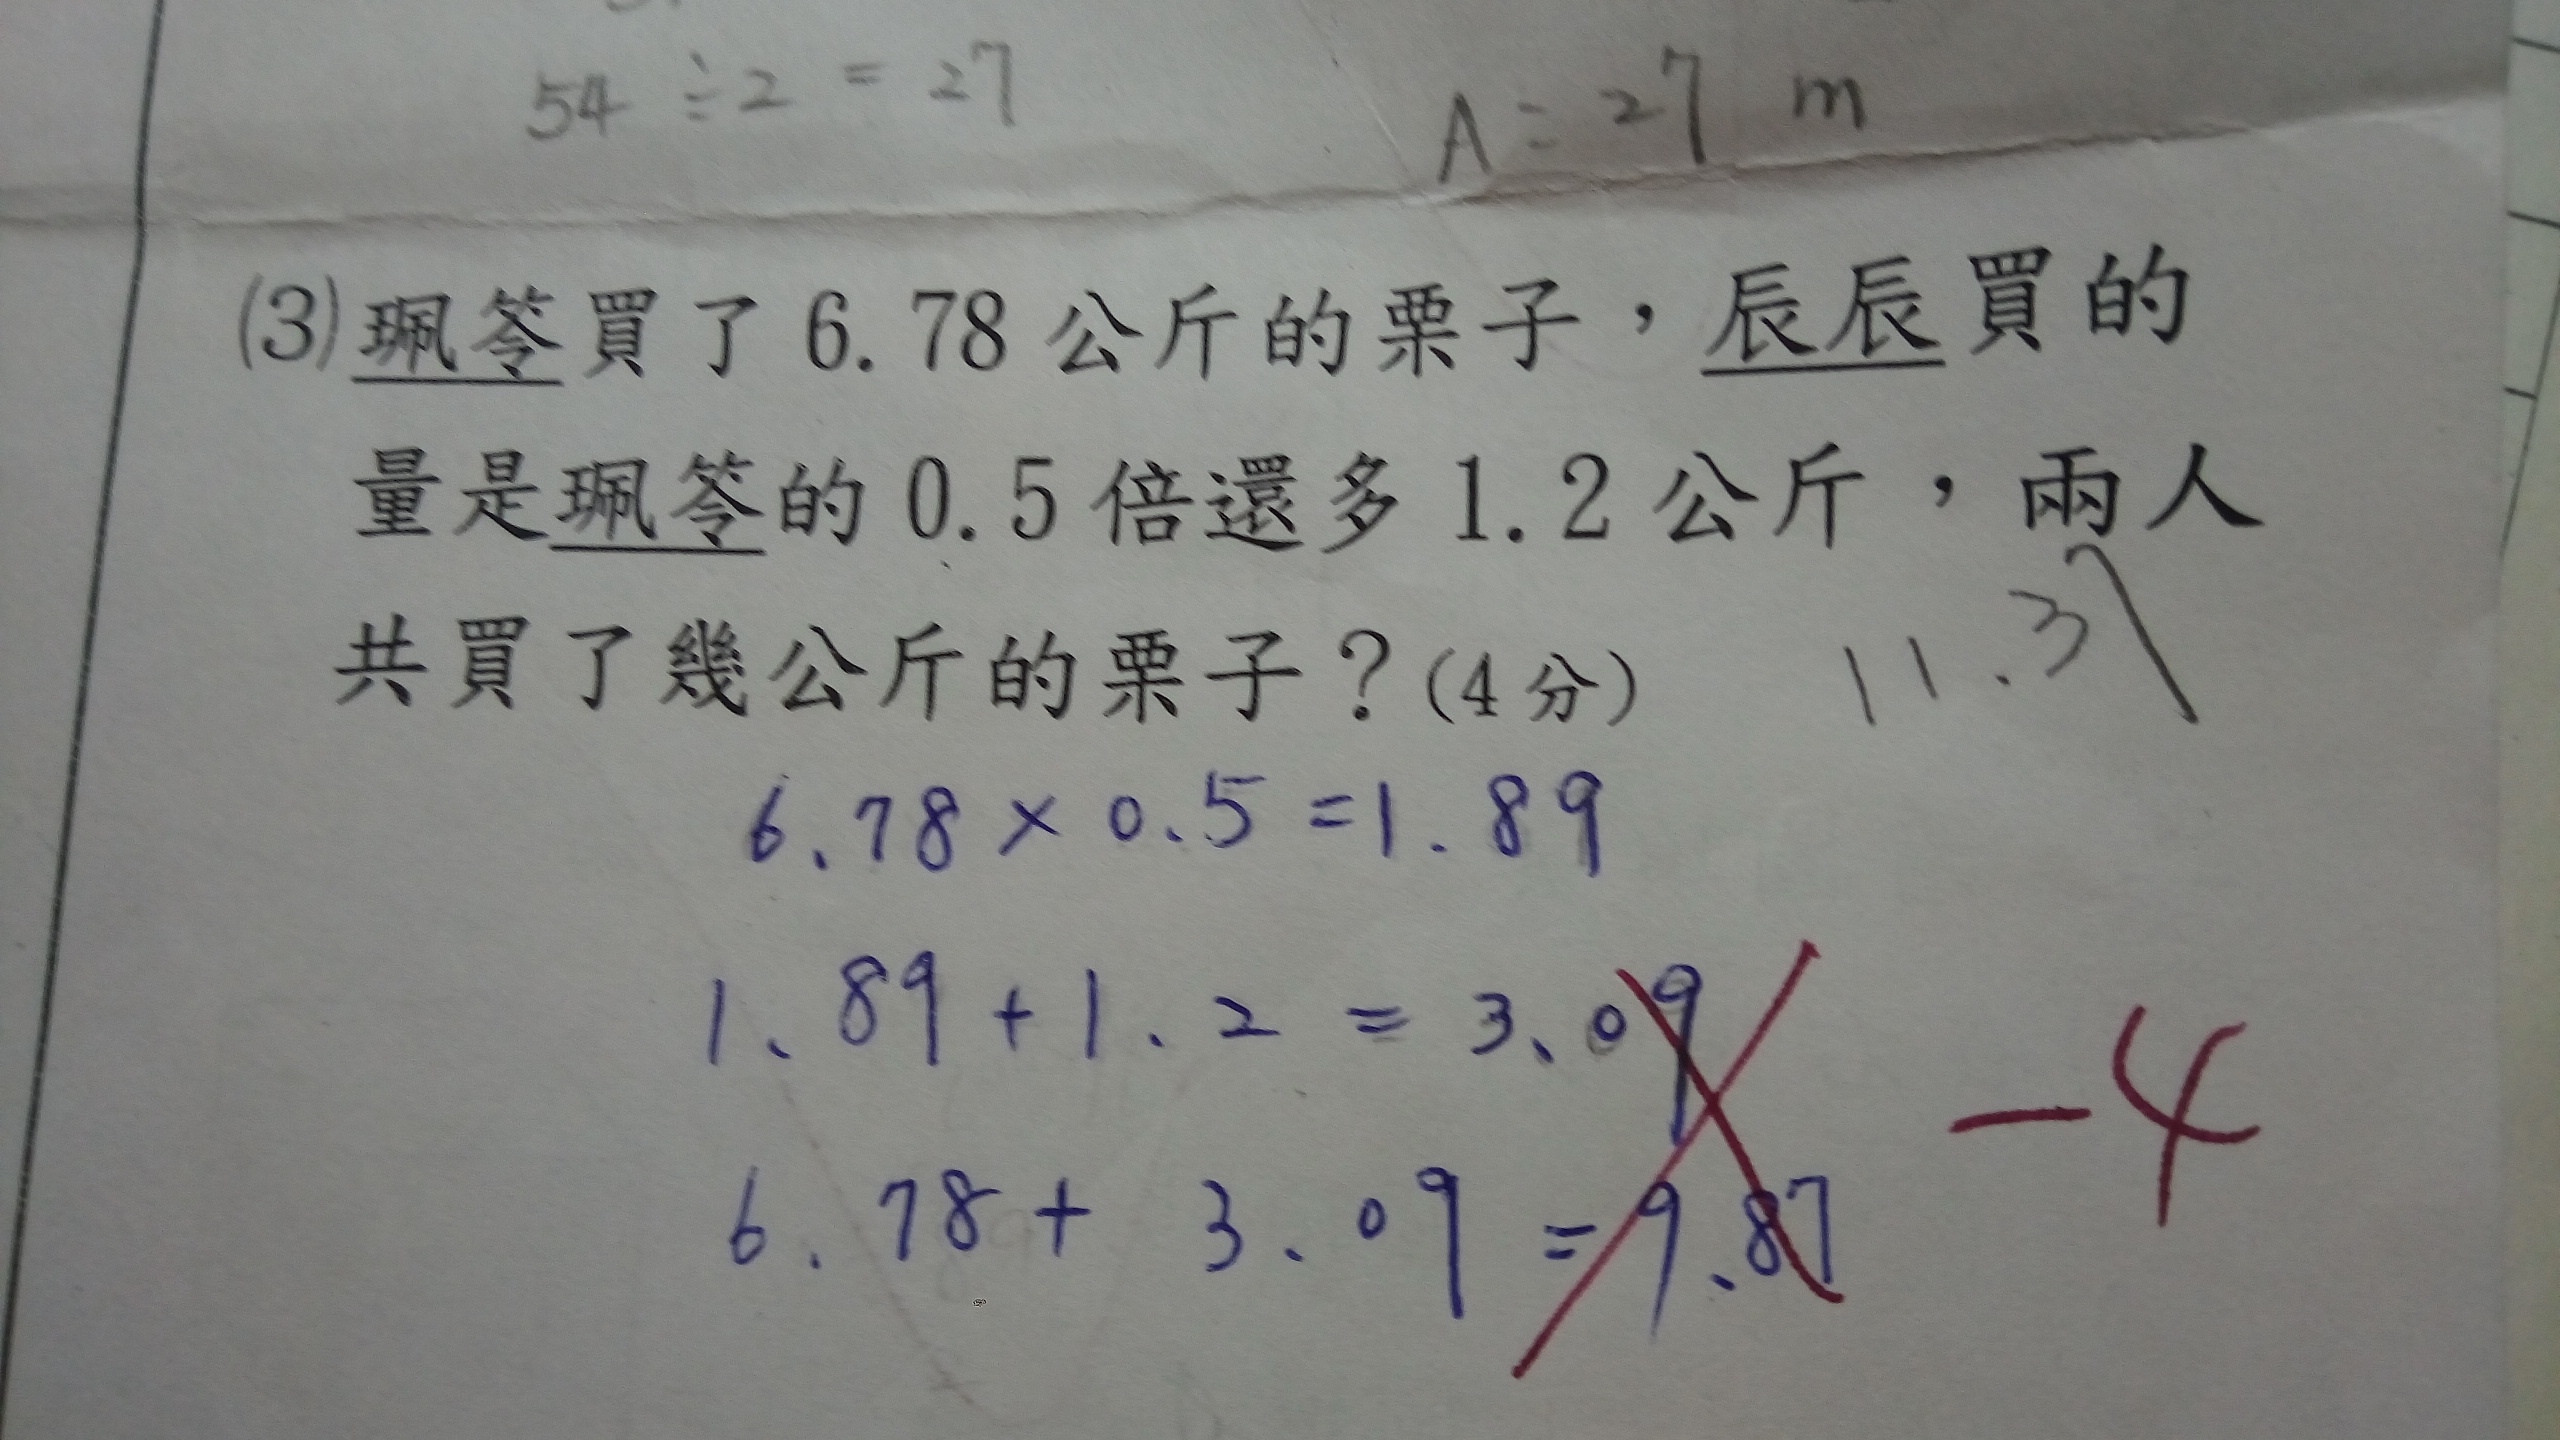 54 ÷ 2 = 27
A = 27 m
(3)珮苓買了 6.78 公斤的栗子，辰辰買的
量是珮苓的 0.5 倍還多 1.2 公斤，兩人
共買了幾公斤的栗子？(4 分)
11.37
6.78 × 0.5 = 1.89
1.89 + 1.2 = 3.09
6.78 + 3.09 = 9.87
-4